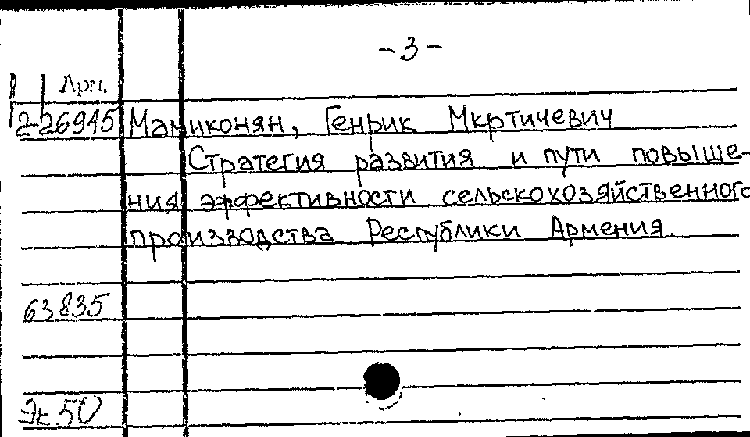 -3-
Арм.
2-26945 Мамиконян, Генрик Мкртичевич
Стратегия развития и пути повыше-
ния эффективности сельскохозяйственного
производства Республики Армения.
63835
Эк. 50